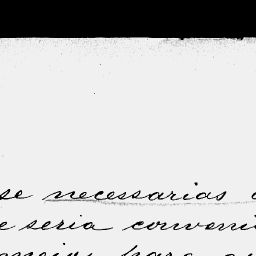 se necessarias
e seria conveni
para